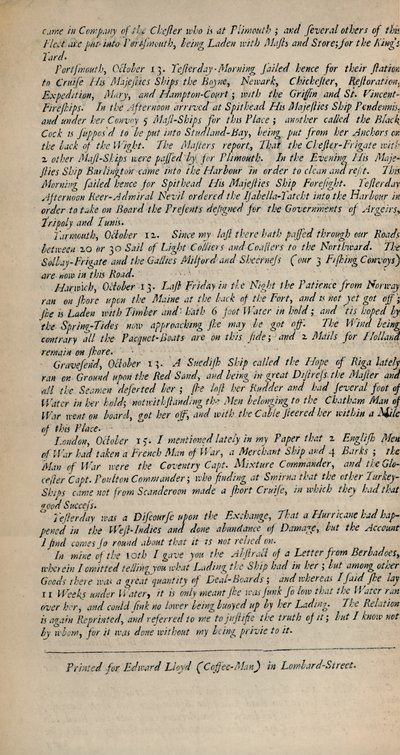 came in Company of the Chester who is at Plimouth ; and several others of this
Fleet are put into Portsmouth, being Laden with Masts and Stores for the King's
Yard.
Portsmouth, October 13. Yesterday-Morning sailed hence for their station
to Cruise His Majesties Ships the Boyne, Newark, Chichester, Restoration,
Expedition, Mary, and Hampton-Court ; with the Griffin and St. Vincent-
Fireships. In the Afternoon arrived at Spithead His Majesties Ship Pendennis,
and under her Convoy 5 Mast-Ships for this Place ; another called the Black
Cock is suppos'd to be put into Studland-Bay, being put from her Anchors on
the back of the Wight. The Masters report, That the Chester-Frigate with
2 other Mast-Ships were passed by for Plimouth. In the Evening His Maje-
sties Ship Burlington came into the Harbour in order to clean and refit. This
Morning sailed hence for Spithead His Majesties Ship Foresight. Yesterday
Afternoon Reer-Admiral Nevil ordered the Isabella-Yatcht into the Harbour in
order to take on Board the Presents designed for the Governments of Argeirs,
Tripoly and Tunis.
Yarmouth, October 12. Since my last there hath passed through our Roads
between 20 or 30 Sail of Light Colliers and Coasters to the Northward. The
Solbay-Frigate and the Gallies Milford and Sheerness (our 3 Fishing Convoys)
are now in this Road.
Harwich, October 13. Last Friday in the Night the Patience from Norway
ran on shore upon the Maine at the back of the Fort, and is not yet got off ;
she is Laden with Timber and hath 6 foot Water in hold ; and 'tis hoped by
the Spring-Tides now approaching she may be got off. The Wind being
contrary all the Pacquet-Boats are on this side ; and 2 Mails for Holland
remain on shore.
Gravesend, October 13. A Suedish Ship called the Hope of Riga lately
ran on Ground upon the Red Sand, and being in great Distress the Master and
all the Seamen deserted her ; she lost her Rudder and had several foot of
Water in her hold; notwithstanding the Men belonging to the Chatham Man of
War went on board, got her off, and with the Cable steered her within a Mile
of this Place.
London, October 15. I mentioned lately in my Paper that 2 English Men
of War had taken a French Man of War, a Merchant Ship and 4 Barks ; the
Man of War were the Coventry Capt. Mixture Commander, and the Glo-
cester Capt. Poulton Commander ; who finding at Smirna that the other Turkey-
Ships came not from Scanderoon made a short Cruise, in which they had that
good Success.
Yesterday was a Discourse upon the Exchange, That a Hurricane had hap-
pened in the West-Indies and done abundance of Damage, but the Account
I find comes so round about that it is not relied on.
In mine of the 10th I gave you the Abstract of a Letter from Berbadoes,
wherein I omitted telling you what Lading the Ship had in her ; but among other
Goods there was a great quantity of Deal-Boards ; and whereas I said she lay
11 Weeks under Water, it is only meant she was sunk so low that the Water ran
over her, and could sink no lower being buoyed up by her Lading. The Relation
is again Reprinted, and referred to me to justifie the truth of it ; but I know not
by whom, for it was done without my being privie to it.
Printed for Edward Lloyd (Coffee-Man) in Lombard-Street.